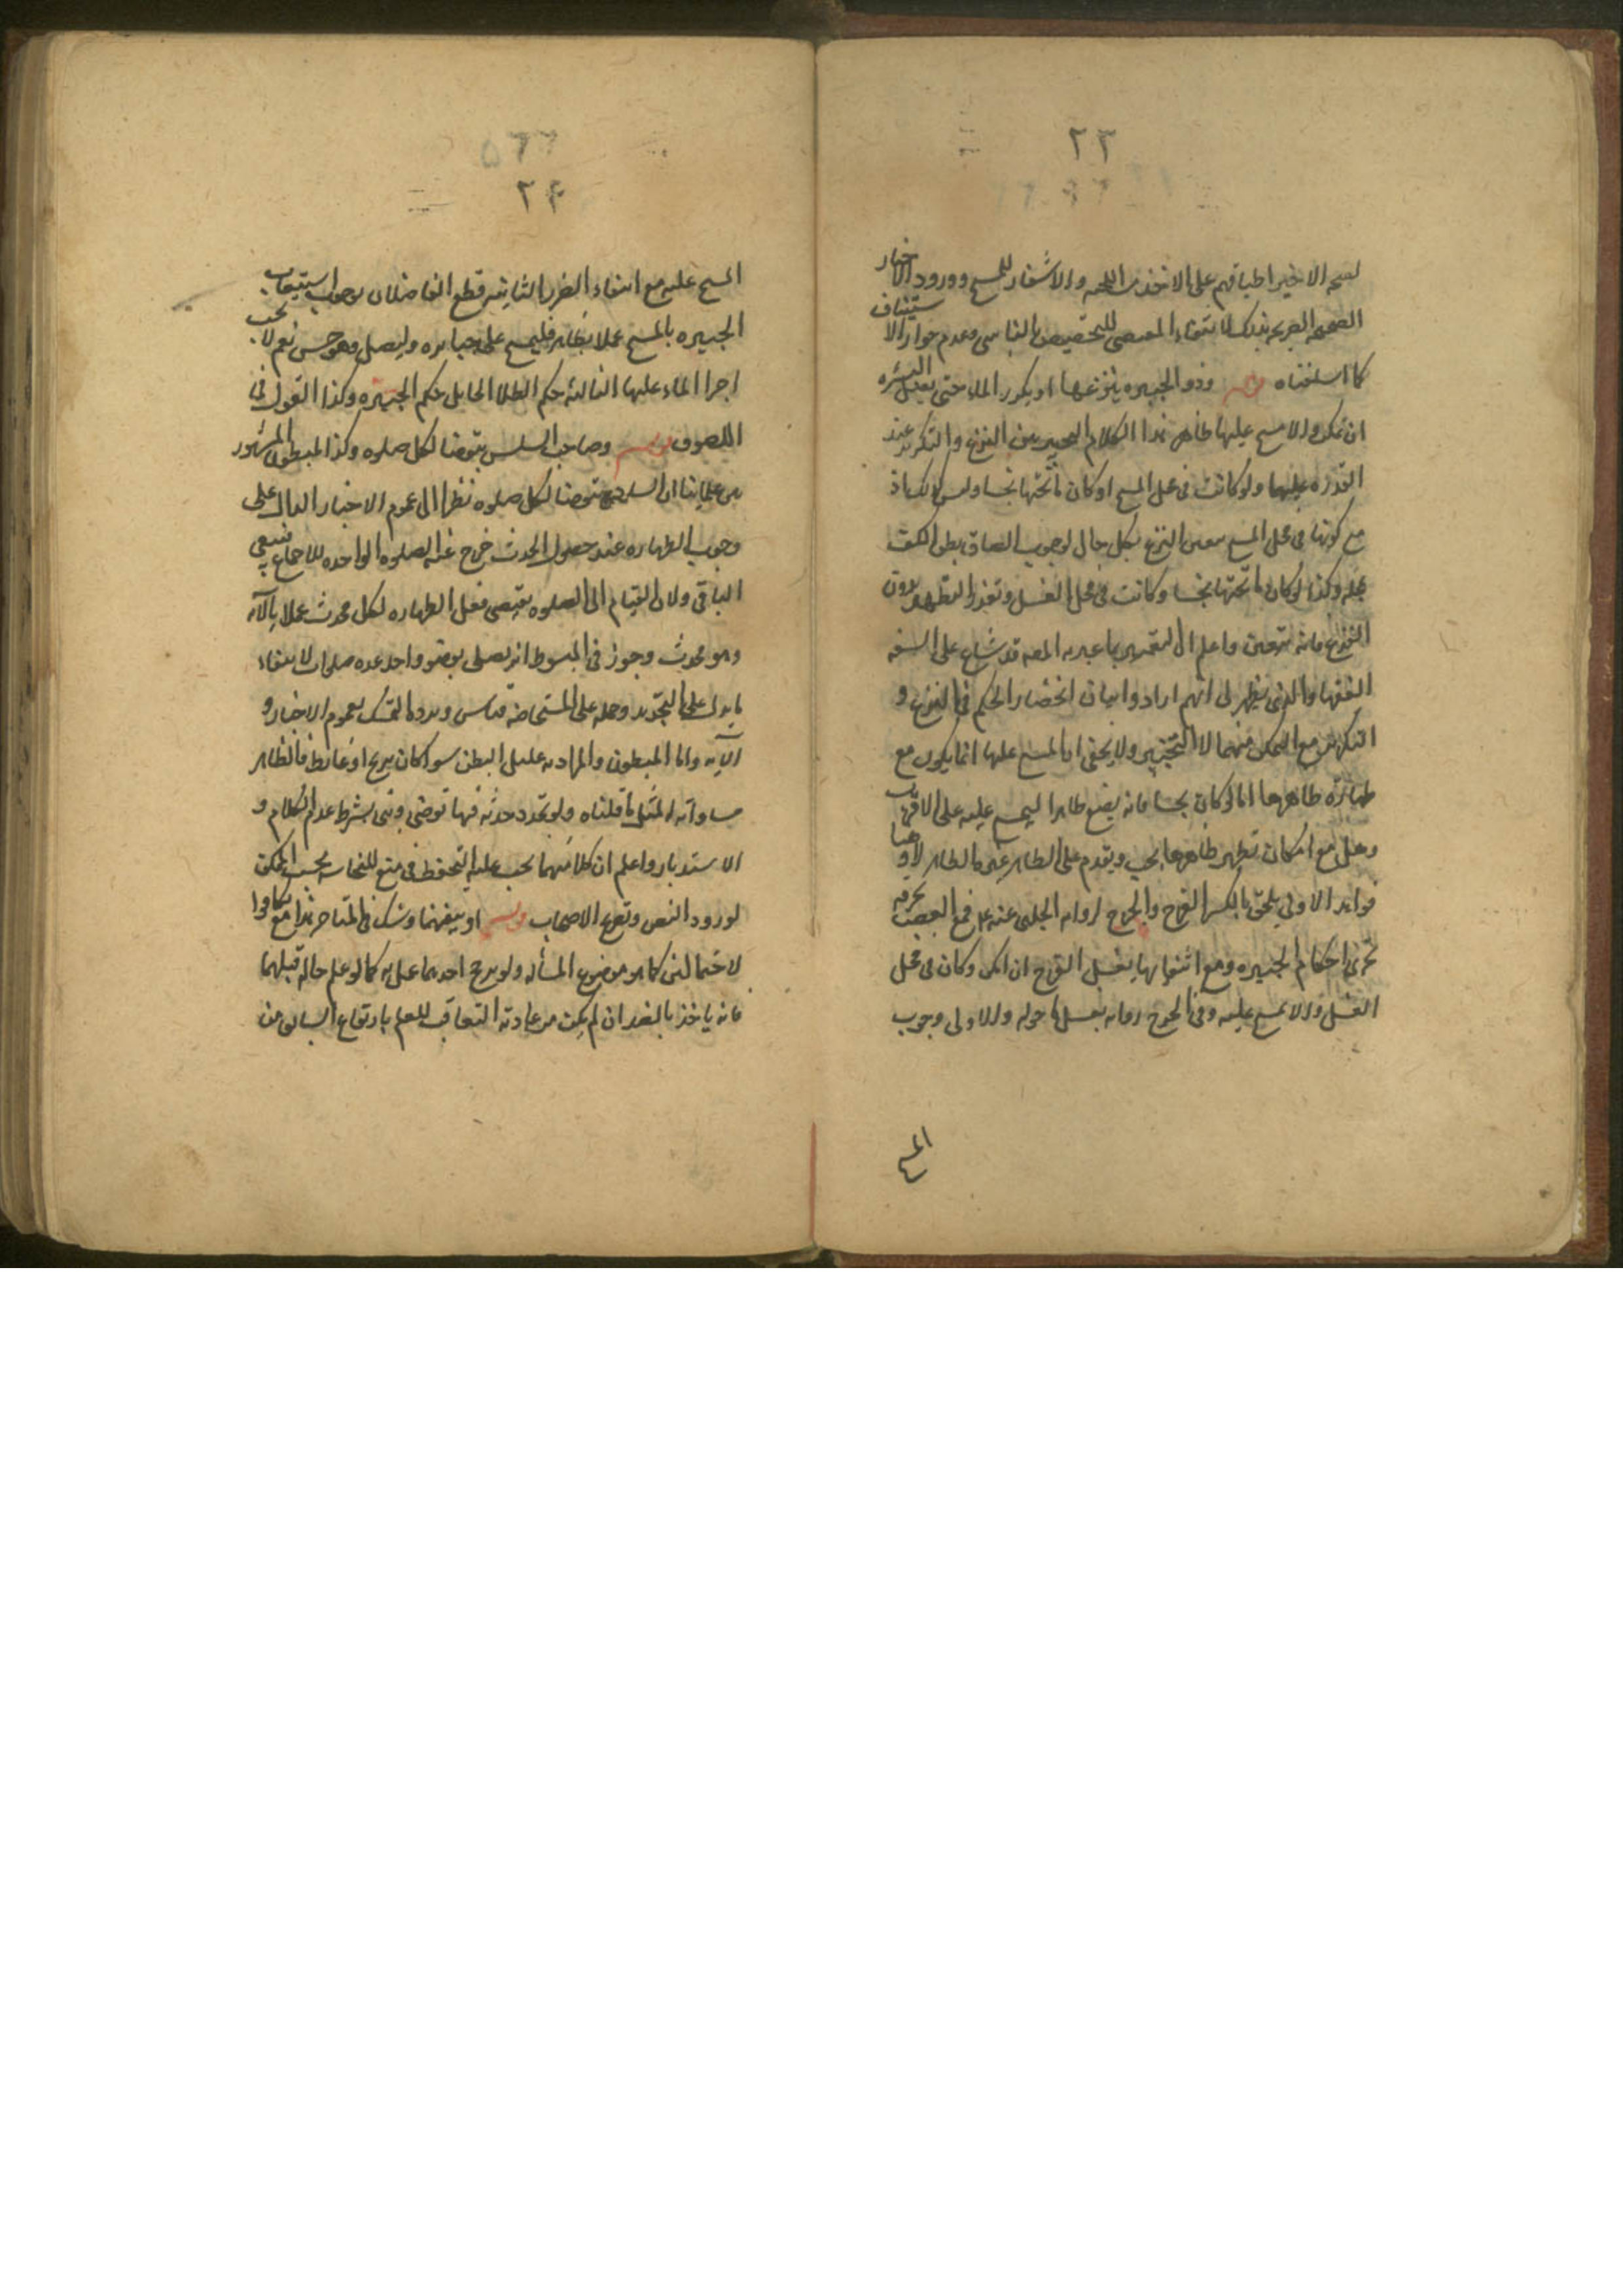 ٢٣
لصحه الاخير اطباقهم على الاخذ من اللحيه والاشفار للمسح وورود الاخبار
الصحيحه الصريحه بذلك لا بتقاء المقتضى للتخصيص بالناسى وعدم جواز الاستيناف
كما اسلفناه قوله وذو الجبيره ينزعها او يكرر الماء حتى يصل البشره
ان تمكن والا مسح عليها ظاهر هذا الكلام التخيير بين النزع والتكرير عند
القدره عليهما ولو كانت فى محل المسح او كان ما تحتها نجسا وليس كذلك اذ
مع كونها فى محل المسح يتعين النزع بكل حال لوجوب الصاق بطن الكف
بمحله وكذا لو كان ما تحتها نجسا وكانت فى محل الغسل وتعذر التطهير بدون
النزع فانه يتعين واعلم ان التعبير بما عبر به المصه قد شاع على السنه
الفقهاء والذى يظهر لى انهم ارادوا بيان انحصار الحكم فى النزع و
التكرير مع التمكن منهما لا التخيير ولا يخفى ان المسح عليها انما يكون مع
طهاره ظاهرها اما لو كان نجسا فانه يضع طاهرا ليمسح عليه على الاقرب
وهل مع امكان تطهير ظاهرها يجب ويقدم على الطاهر غيره الظاهر لا وهنا
فوايد الاولى يلحق بالكسر القرح والجرح لروايه الحلبى عنه ع فمع العصب بخرقه
تجرى احكام الجبيره ومع انتفائها يغسل القرح ان امكن وكان فى محل
الغسل والا مسح عليه وفى الجرح روايه بغسل ما حوله والاولى وجوب
المسح
٢٤
المسح عليه مع انتفاء الضرر الثانيه قطع الفاضلان بوجوب استيعاب
الجبيره بالمسح عملا بظاهر فليمسح على جبايره وليصل وهو حسن نعم لا يجب
اجراء الماء عليها الثالثه حكم الطلاء الحايل حكم الجبيره وكذا القول فى
اللصوق قوله وصاحب السلس يتوضأ لكل صلوه وكذا المبطون المشهور
بين علمائنا ان السلس يتوضأ لكل صلوه نظرا الى عموم الاخبار الداله على
وجوب الطهاره عند حصول الحدث خرج عنه الصلوه الواحده للاجماع فيبقى
الباقى ولان القيام الى الصلوه يقتضى فعل الطهاره لكل محدث عملا بالآيه
وهو محدث وجوز فى المبسوط ان يصلى بوضوء واحد عده صلوات لانتفاء
ما يدل على التجديد وحمله على المستحاضه قياس ويرده التمسك بعموم الاخبار و
الآيه واما المبطون والمراد به عليل البطن سواء كان بريح او غائط فالظاهر
مساواته لمثل ما قلناه ولو تجدد حدثه فيها توضى وبنى بشرط عدم الكلام و
الاستدبار واعلم ان كلا منهما يجب عليه التحفظ فى منع للنجاسه بحسب الممكن
لورود النص وتصريح الاصحاب قوله او تيقنهما وشك فى المتاخر هذا مع تكافؤا
الاحتمالين كما هو موضوع المسأله ولو يرجح احدهما عمل به كما لو علم حاله قبلهما
فانه ياخذ بالضد ان لم يكن من عادته التعاقب للعلم بارتفاع السابق من